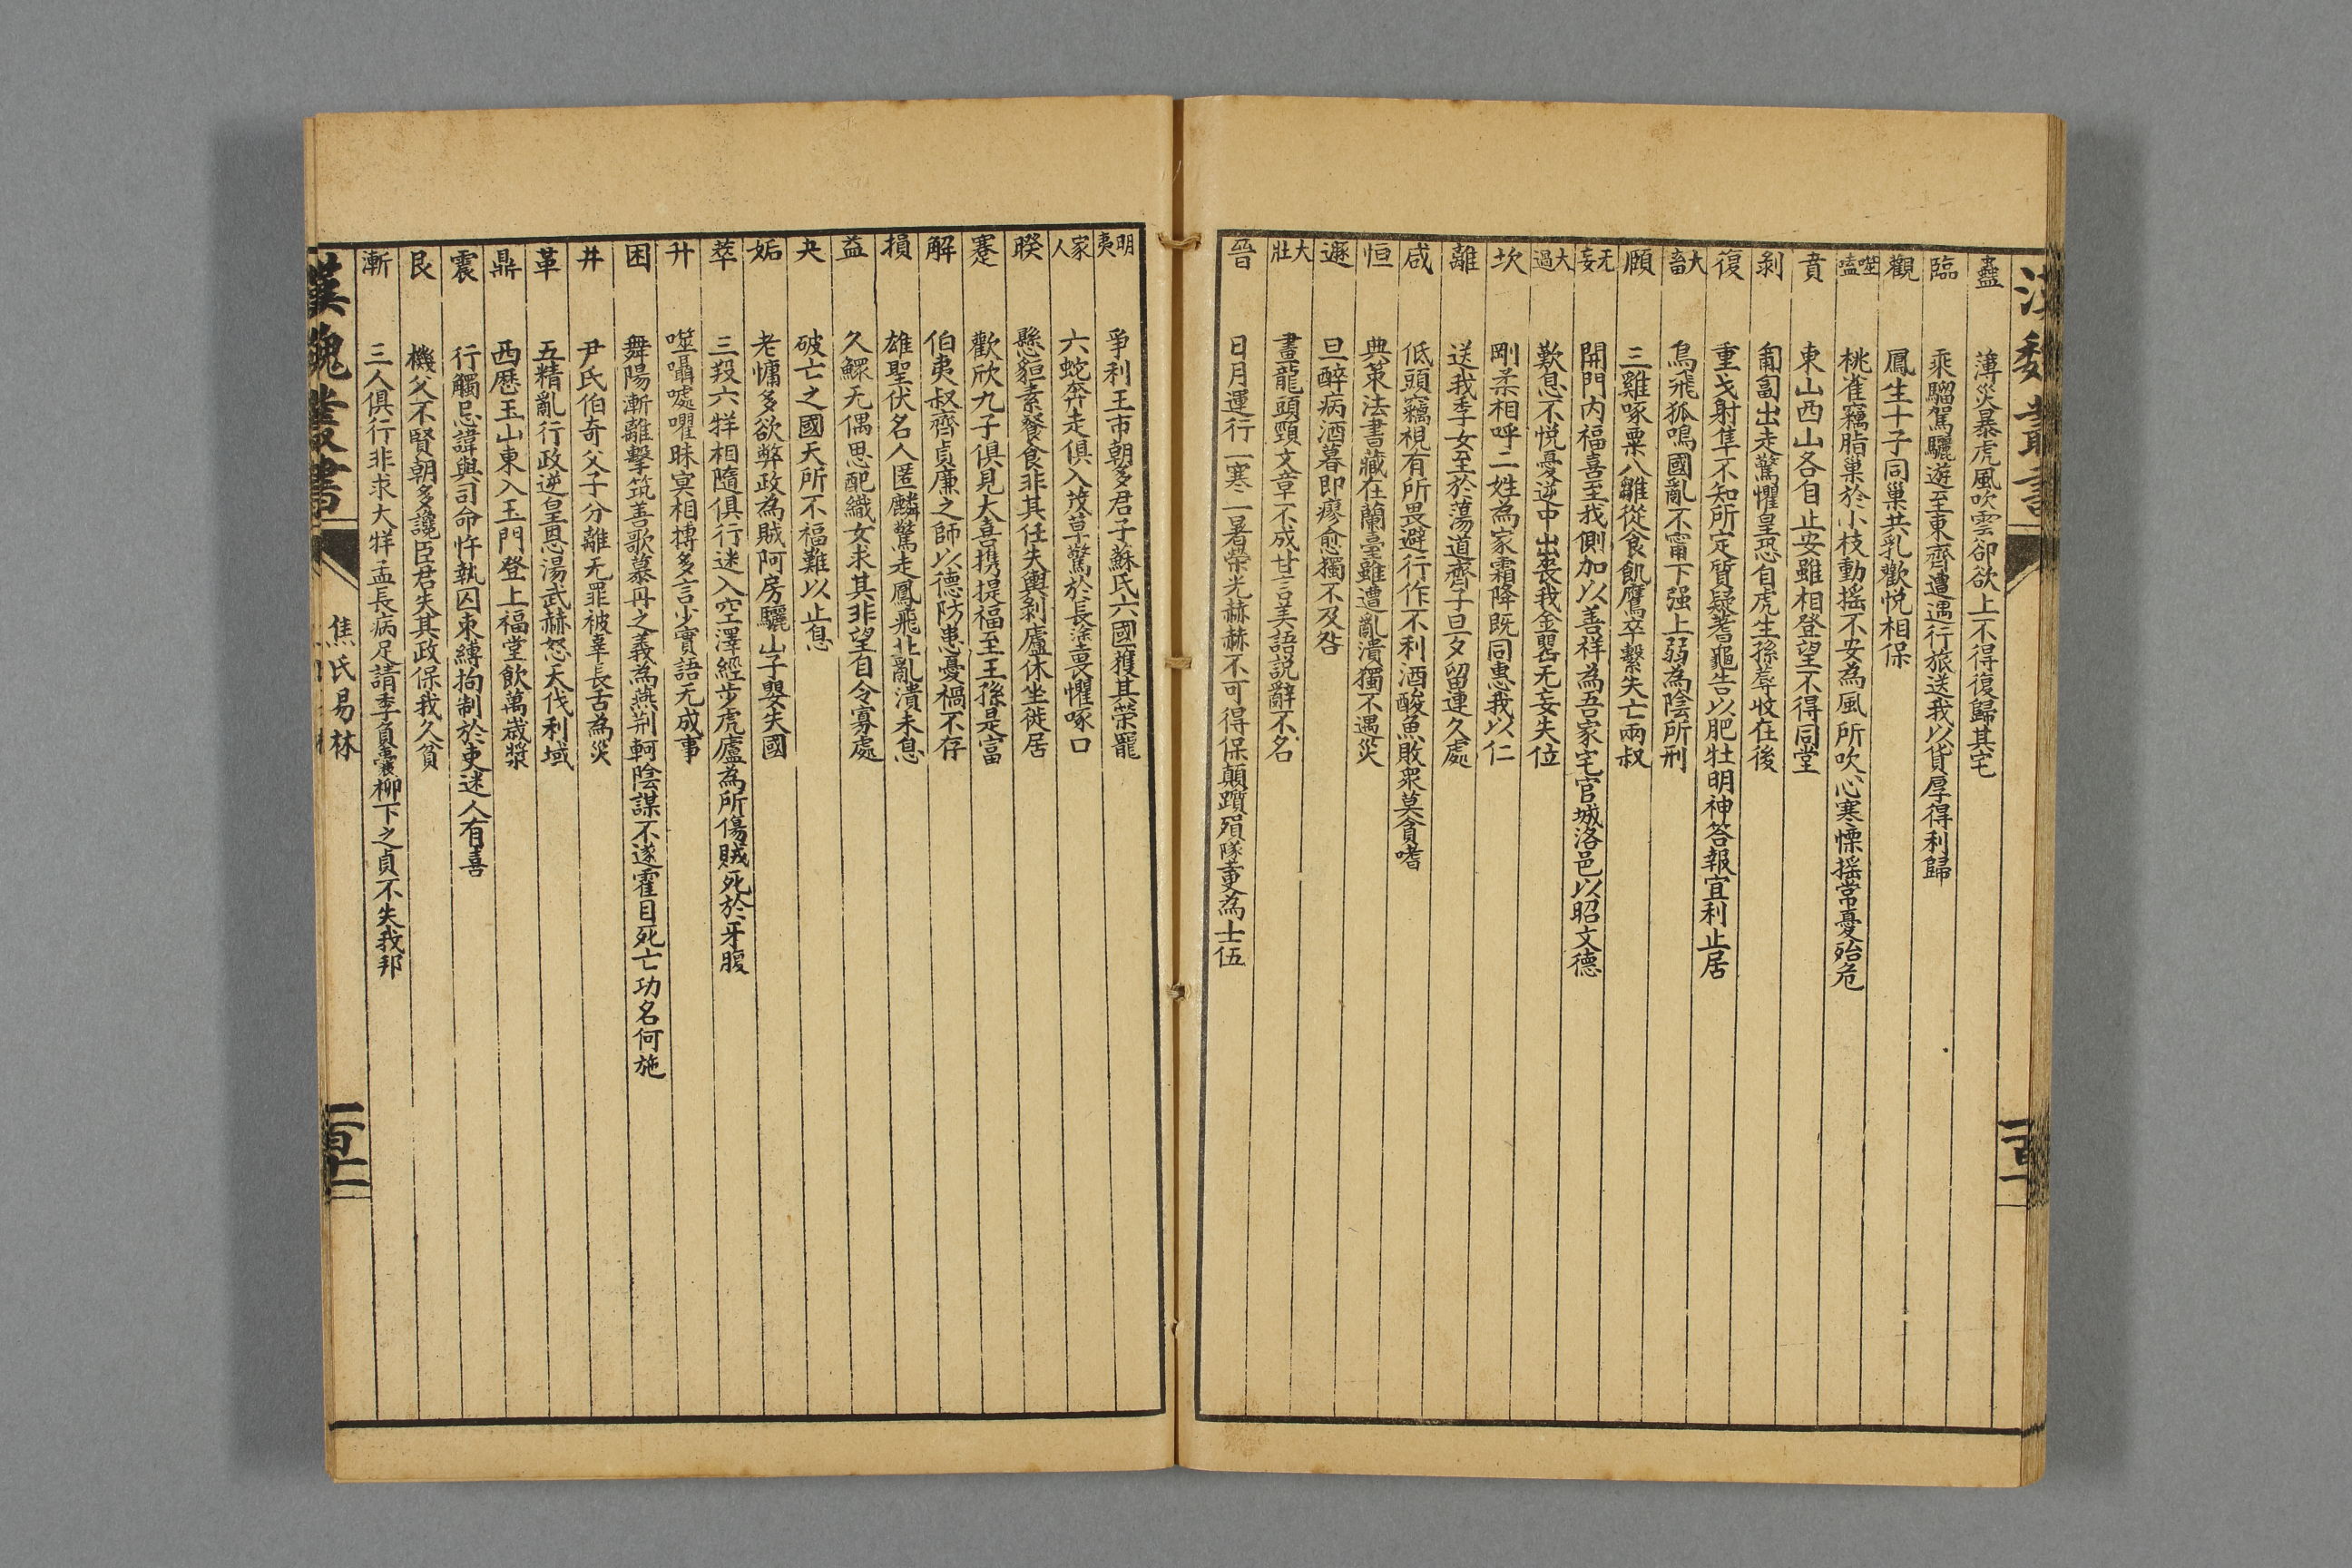 漢魏叢書
蠱 薄災暴虎風吹雲卻欲上不得復歸其宅
臨 乘騮駕驪遊至東齊遭遇行旅送我以貨厚得利歸
觀 鳳生十子同巢共乳歡悅相保
噬嗑 桃雀竊脂巢於小枝動搖不安為風所吹心寒慄搖常憂殆危
賁 東山西山各自止安雖相登望不得同堂
剝 匍匐出走驚懼皇恐自虎生孫蓐收在後
復 重戈射隼不知所定質疑蓍龜告以肥牡明神答報宜利止居
大畜 烏飛狐鳴國亂不甯下强上弱為陰所刑
頤 三雞啄粟八雛從食飢鷹卒擊失亡兩叔
无妄 開門內福喜至我側加以善祥為吾家宅官城洛邑以昭文德
大過 歎息不悅憂逆中出喪我金罌无妄失位
坎 剛柔相呼二姓為家霜降既同惠我以仁
離 送我季女至於蕩道齊子旦夕留連久處
咸 低頭竊視有所畏避行作不利酒酸魚敗眾莫貪嗜
恒 典策法書藏在蘭臺雖遭亂潰獨不遇災
遯 旦醉病酒暮即瘳愈獨不及咎
大壯 畫龍頭頸文章不成甘言美語說辭不名
晉 日月運行一寒一暑榮光赫赫不可得保顛躓殞墜更為士伍
明夷 爭利王市朝多君子蘇氏六國獲其榮寵
家人 六蛇奔走俱入茂草驚於長塗畏懼啄口
睽 懸貆素餐食非其任失輿剝廬休坐徙居
蹇 歡欣九子俱見大喜携提福至王孫是富
解 伯夷叔齊貞廉之師以德防患憂禍不存
損 雄聖伏名人匿麟驚走鳳飛北亂潰未息
益 久鰥无偶思配織女求其非望自令寡處
夬 破亡之國天所不福難以止息
姤 老慵多欲弊政為賊阿房驪山子嬰失國
萃 三羖六牂相隨俱行迷入空澤經步虎廬為所傷賊死於牙腹
升 噬囁噓嚾昧冥相摶多言少實語无成事
困 舞陽漸離擊筑善歌慕丹之義為燕荆軻陰謀不遂霍目死亡功名何施
井 尹氏伯奇父子分離无罪被辜長舌為災
革 五精亂行政逆皇恩湯武赫怒天伐利域
鼎 西歷玉山東入玉門登上福堂飲萬歲漿
震 行觸忌諱與司命忤執囚束縛拘制於吏迷人有喜
艮 機父不賢朝多讒臣君失其政保我久貧
漸 三人俱行非求大牂孟長病足請季負囊柳下之貞不失我邦
漢魏叢書
焦氏易林